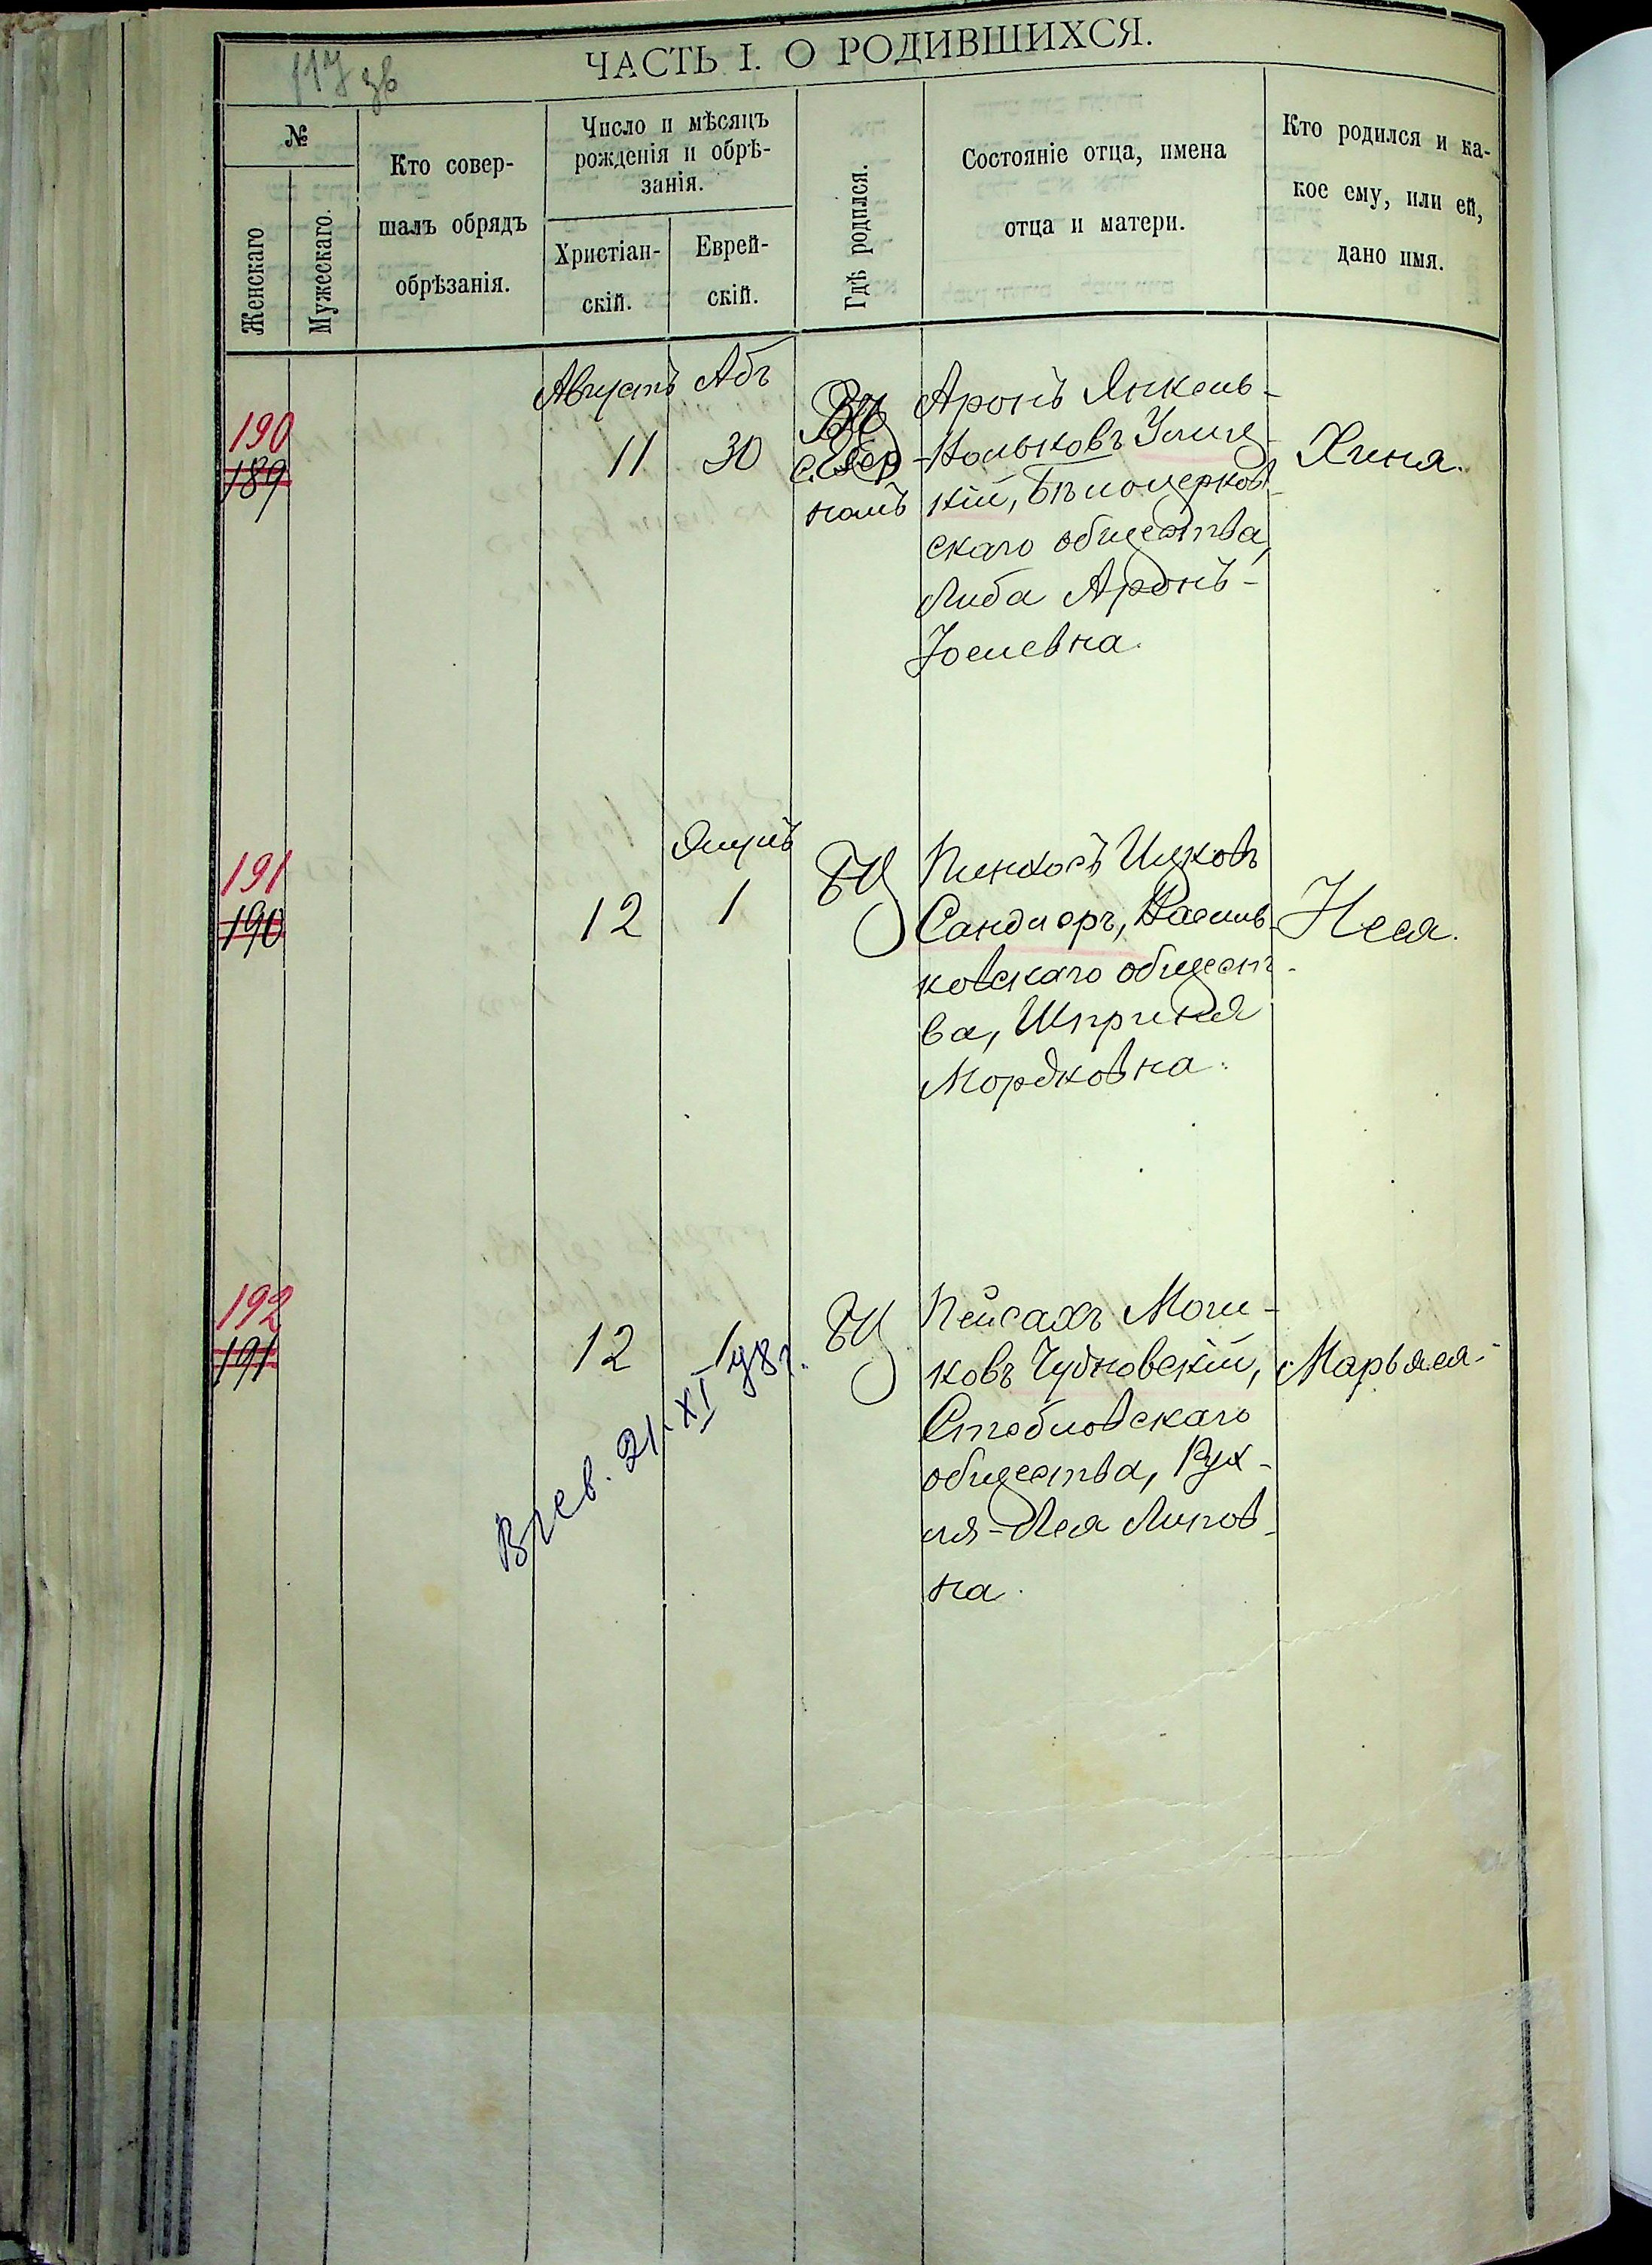 117 зв
ЧАСТЬ I. О РОДИВШИХСЯ.
№
Женскаго
Мужескаго.
Кто совер-
шалъ обрядъ
обрѣзанія.
Число и мѣсяцъ
рожденія и обрѣ-
занія.
Христіан-
скій.
Еврей-
скій.
Гдѣ родился.
Состояніе отца, имена
отца и матери.
Кто родился и ка-
кое ему, или ей,
дано имя.
Августъ Абъ
190
189
11
30
Аронъ Янкель-
кій, Бѣлоцерков-
скаго общества,
Либа Аронъ-
Іоселевна.
Хиня.
191
190
Элулъ
12
1
БЦ
Пинхосъ Ицковъ
Сандлеръ, Василь-
ковскаго общест-
ва, Шпринця
Мордковна.
Неся.
192
191
12
1
БЦ
Пейсахъ Мош-
ковъ Чудновскій,
Стеблевскаго
общества, Рух-
ля-Лея Липов-
на.
Марьяся.
21.XI 98г.